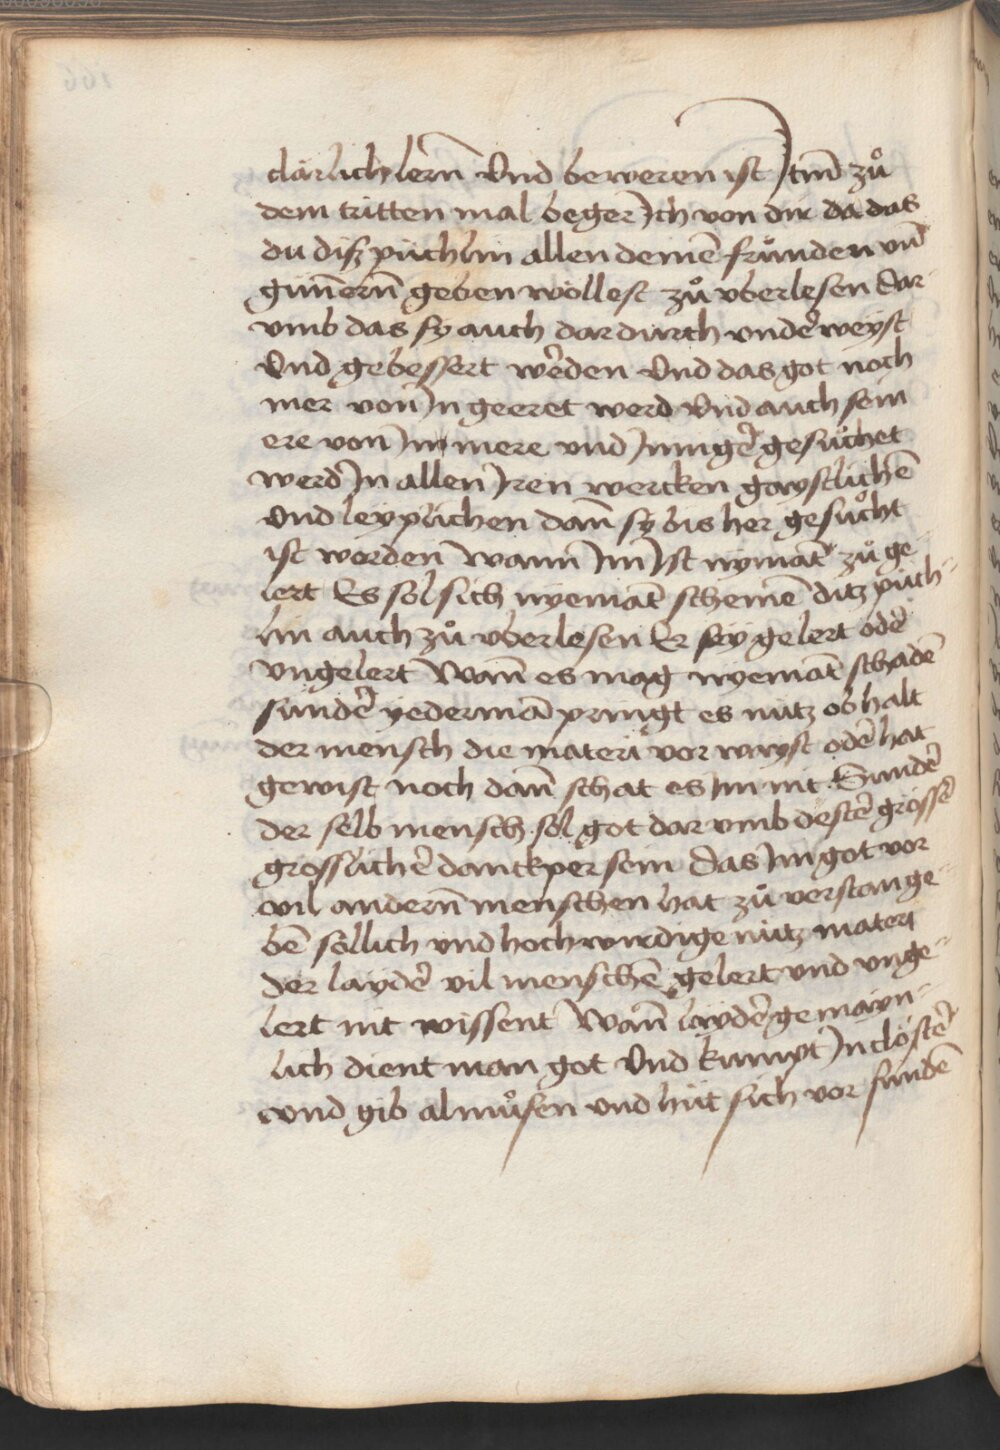 clärlich lern̄ Vnd beweren ist Itm̄ zů
dem tritten mal beger Ich von dir da das
du diß püchlin allen deinē frůnden vn̄
günnern̄ geben wöllest zů vberlesen Dar
vmb das sy auch dardurch vnderweyst
Vnd gebessert werden Vnd das got noch
mer von In geeret werd Vnd auch sein
ere von Im mere vnd Inniger gesůchet
werd In allen Iren wercken gaystlichē
Vnd leyplichen dann̄ sy bis her gesůcht
ist worden Wann Im Ist nymāt zů ge
lert Es sol sich nyemāt schemē ditz püch-
lin auch zů vberlesen Er sey gelert oder
vngelert Wan̄ es mag nyemāt schadē
sunder yedermā pringt es nutz ob halt
der mensch die materi vor wayst oder hat
gewist noch dan̄ schat es Im nit Sunder
der selb mensch sol got dar vmb dester grösser
grosslicher danckper sein Das Im got vor
vil andern̄ menschen hat zů verstan ge-
bē söllich vnd hochwirdige nütz materi
der layder vil menschē gelert vnd vnge-
lert nit wissent Wan̄ layder gemayn-
lich dient man got Vnd kumpt In clöster
vnd gib almůsen vnd hüt sich vor sundē